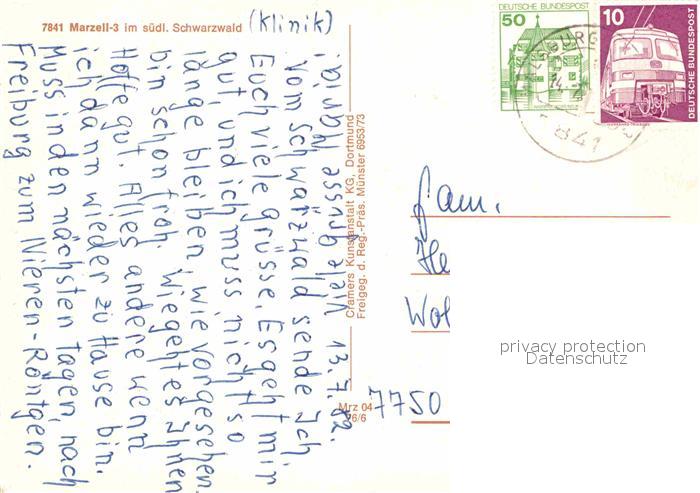 7841 Marzell-3 im südl. Schwarzwald
(Klinik)
13.7.82.
Vom Schwarzwald sende Ich
Euch viele grüsse. Es geht mir
gut, und ich muss nicht so
länge bleiben wie vorgesehen.
bin schon froh. Wie geht es Ihnen
Hoffe gut. Alles andere wenn
ich dann wieder zu Hause bin.
Muss in den nächsten Tagen, nach
Freiburg zum Nieren-Röntgen.
Viele grüsse Maria.
Cramers Kunstanstalt KG, Dortmund
Freigeg. d. Reg.-Präs. Münster 6953/73
Mrz 04
76/6
DEUTSCHE BUNDESPOST
50
10
DEUTSCHE BUNDESPOST
841
Fam.
He
Wol
7750
privacy protection
Datenschutz